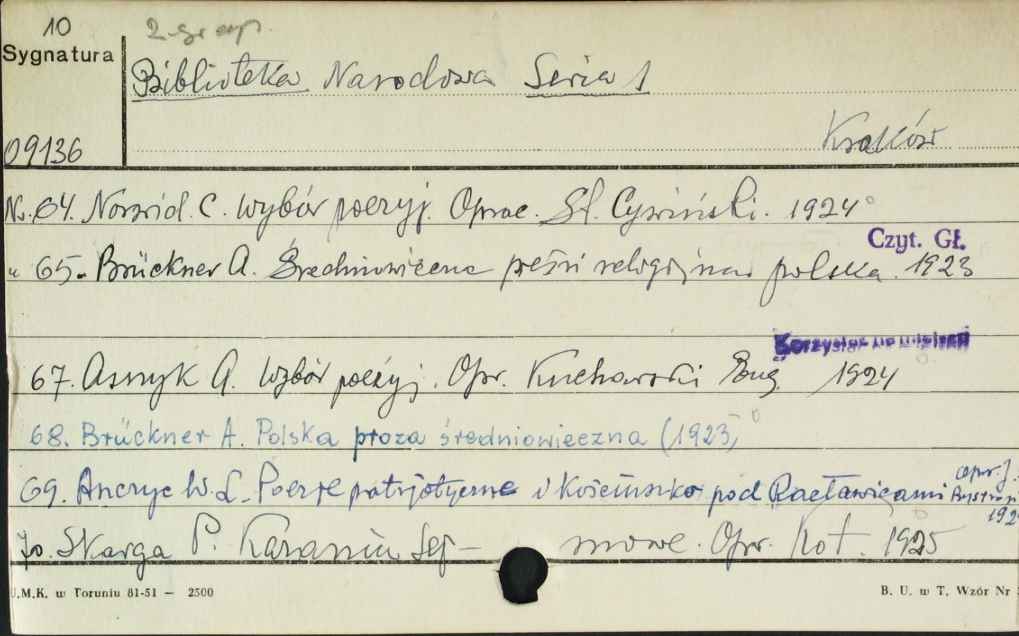 10 2-gi egz.
Sygnatura
Biblioteka Narodowa Seria I
09136 Kraków
Nr. 64. Norwid. C. Wybór poezyj. Oprac. St. Cywiński. 1924
Czyt. Gł.
„ 65. Brückner A. Średniowieczna pieśń religijna polska. 1923
Korzystać na miejscu
67. Asnyk A. Wybór poezyj. Opr. Kucharski Eug 1924
68. Brückner A. Polska proza średniowieczna (1923)
opr. J.
69. Anczyc W. L. Poezje patrjotyczne i Kościuszko pod Racławicami
192
70. Skarga P. Kazania Sej- mowe. Opr. Kot. 1925
U.M.K. w Toruniu 81-51 — 2500 B. U. w T. Wzór Nr